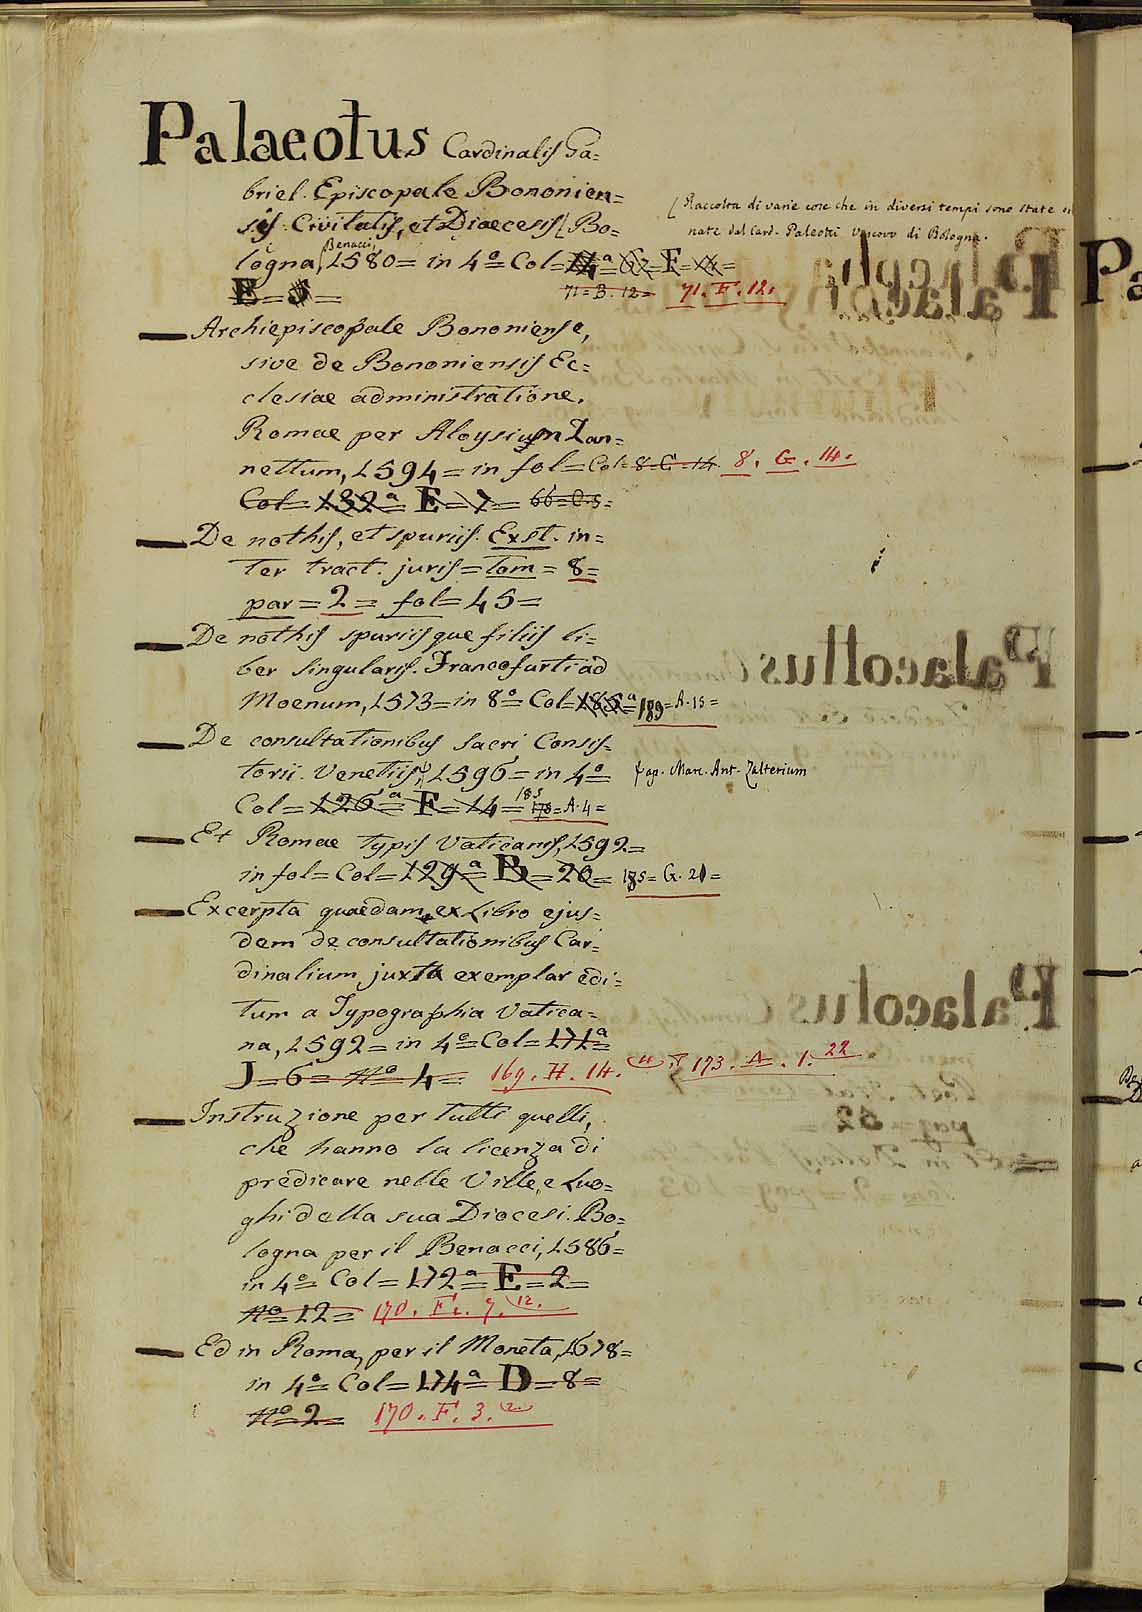 Palaeotus Cardinalis Ga=
briel. Episcopale Bononien=
sis Civitatis, et Dioecesis [Bo=
[Raccolta di varie cose che in diversi tempi sono state
nate dal Card. Paleotti Vescovo di Bologna.
Benacci,
logna, 1580= in 4º Col=
71=B.12= 71. F. 12.
Archiepiscopale Bononiense,
sive de Bononiensis Ec=
clesiae administratione.
Romae per Aloysium Zan=
nettum, 1594= in fol= Col= 8 G 14 8. G. 14.
Col= 132ª E=7= 66=C.5=
De nothis, et spuriis. Exst. in=
ter tract. juris= Tom= 8=
par= 2= fol= 45=
De nothis spuriisque filiis li=
ber singularis. Francofurti ad
Moenum, 1573= in 8º Col= 185ª= 189=A.15=
De consultationibus sacri Consis=
torii. Venetiis, 1596= in 4º ap. Marc. Ant. Zalterium
Col= 126ª F=14= 185 =A.4=
Et Romae typis Vaticanis, 1592=
in fol= Col= 129ª B=20= 185= G. 21=
Excerpta quaedam ex Libro ejus=
dem de consultationibus Car=
dinalium juxta exemplar edi=
tum a Typographia Vatica=
na, 1592= in 4º Col= 171ª
J=6= nº 4= 169. H. 14. 11 173. A. 1. 22
Instruzione per tutti quelli,
che hanno la licenza di
predicare nelle Ville, e Luo=
ghi della sua Diocesi. Bo=
logna per il Benacci, 1586=
in 4º Col= 172ª E=2=
nº 12= 170. F. 7. 12.
Ed in Roma, per il Moneta, 1678=
in 4º Col= 174ª D=8=
nº 2= 170. F. 3. 2.
Pa